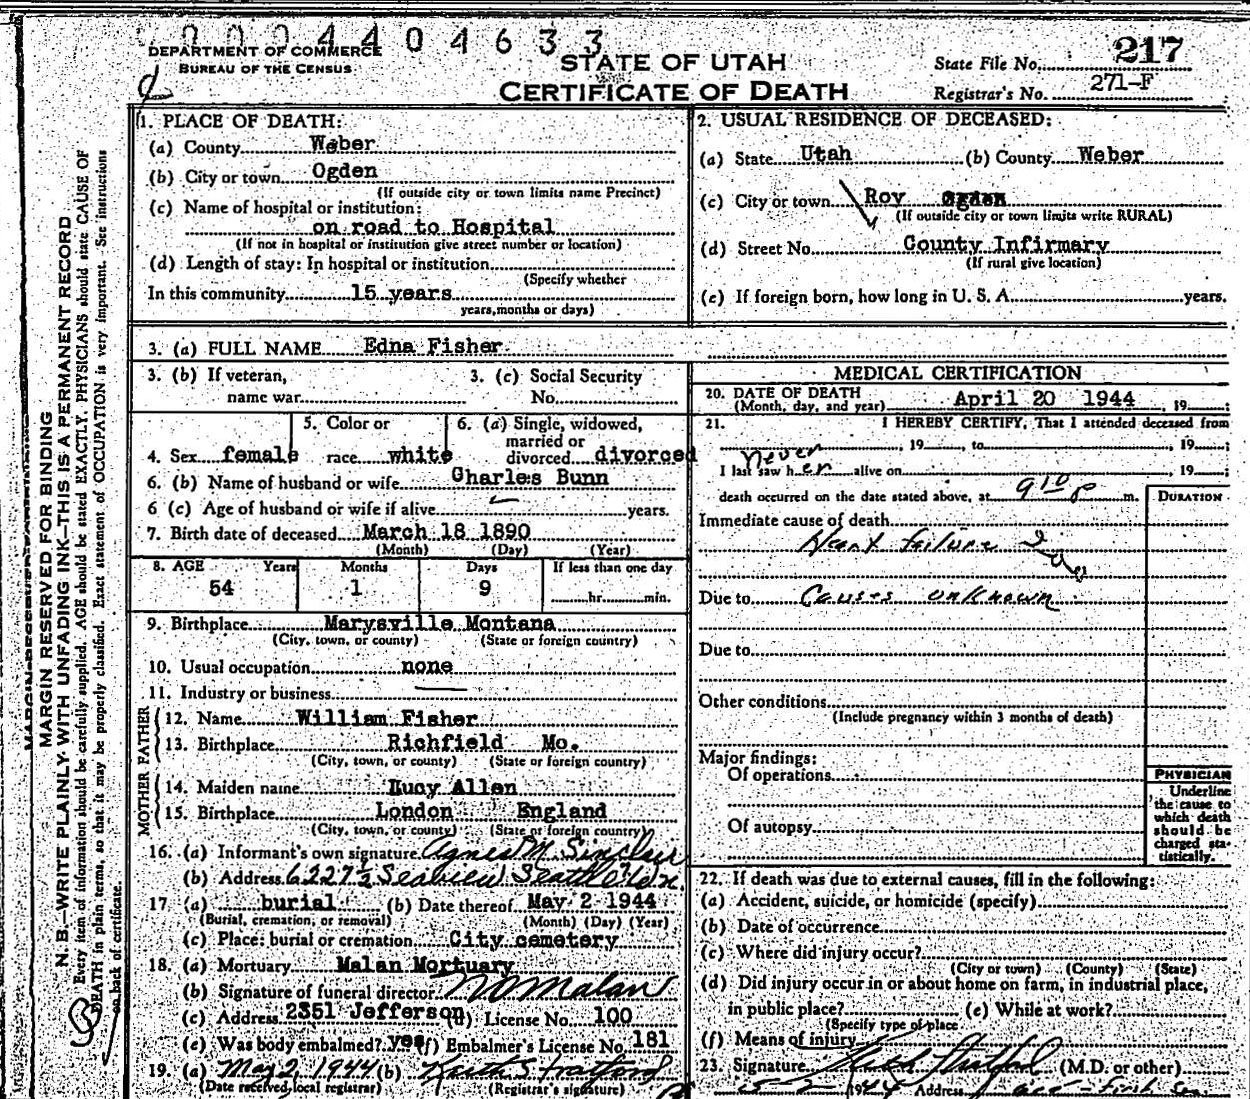 0 0 0 4 4 0 4 6 3 3
DEPARTMENT OF COMMERCE
BUREAU OF THE CENSUS
STATE OF UTAH
CERTIFICATE OF DEATH
State File No. 217
Registrar's No. 271-F
MARGIN RESERVED FOR BINDING
N. B.—WRITE PLAINLY WITH UNFADING INK—THIS IS A PERMANENT RECORD
Every item of information should be carefully supplied. AGE should be stated EXACTLY. PHYSICIANS should state CAUSE OF
DEATH in plain terms, so that it may be properly classified. Exact statement of OCCUPATION is very important. See instructions
on back of certificate.
1. PLACE OF DEATH:
(a) County Weber
(b) City or town Ogden
(If outside city or town limits name Precinct)
(c) Name of hospital or institution:
on road to Hospital
(If not in hospital or institution give street number or location)
(d) Length of stay: In hospital or institution
(Specify whether
In this community 15 years
years, months or days)
2. USUAL RESIDENCE OF DECEASED:
(a) State Utah (b) County Weber
(c) City or town Roy Ogden
(If outside city or town limits write RURAL)
(d) Street No. County Infirmary
(If rural give location)
(e) If foreign born, how long in U. S. A. years.
3. (a) FULL NAME Edna Fisher
3. (b) If veteran, name war
3. (c) Social Security No.
4. Sex female
5. Color or race white
6. (a) Single, widowed, married or divorced divorced
6. (b) Name of husband or wife Charles Bunn
6 (c) Age of husband or wife if alive years.
7. Birth date of deceased March 18 1890
(Month) (Day) (Year)
8. AGE Years Months Days If less than one day
54 1 9 hr. min.
9. Birthplace Marysville Montana
(City, town, or county) (State or foreign country)
10. Usual occupation none
11. Industry or business
FATHER
12. Name William Fisher
13. Birthplace Richfield Mo.
(City, town, or county) (State or foreign country)
MOTHER
14. Maiden name Lucy Allen
15. Birthplace London England
(City, town, or county) (State or foreign country)
16. (a) Informant's own signature Agnes M. Sinclair
(b) Address 6227½ Seaview Seattle
17 (a) burial (b) Date thereof May 2 1944
(Burial, cremation, or removal) (Month) (Day) (Year)
(c) Place: burial or cremation City cemetery
18. (a) Mortuary Malan Mortuary
(b) Signature of funeral director N O Malan
(c) Address 2351 Jefferson (d) License No. 100
(e) Was body embalmed? yes (f) Embalmer's License No. 181
19. (a) May 2, 1944 (b) Keith Stratford
(Date received local registrar) (Registrar's signature)
MEDICAL CERTIFICATION
20. DATE OF DEATH April 20 1944, 19 ;
(Month, day, and year)
21. I HEREBY CERTIFY, That I attended deceased from
never, 19 , to , 19 ;
I last saw her alive on , 19 ;
death occurred on the date stated above, at 9 10 p m.
DURATION
Immediate cause of death
Heart failure
Due to Causes unknown
Due to
Other conditions
(Include pregnancy within 3 months of death)
Major findings:
Of operations
Of autopsy
PHYSICIAN
Underline
the cause to
which death
should be
charged sta-
tistically.
22. If death was due to external causes, fill in the following:
(a) Accident, suicide, or homicide (specify)
(b) Date of occurrence
(c) Where did injury occur?
(City or town) (County) (State)
(d) Did injury occur in or about home on farm, in industrial place,
in public place? (e) While at work?
(Specify type of place
(f) Means of injury
23. Signature Keith Stratford (M.D. or other)
5-2-1944 Address